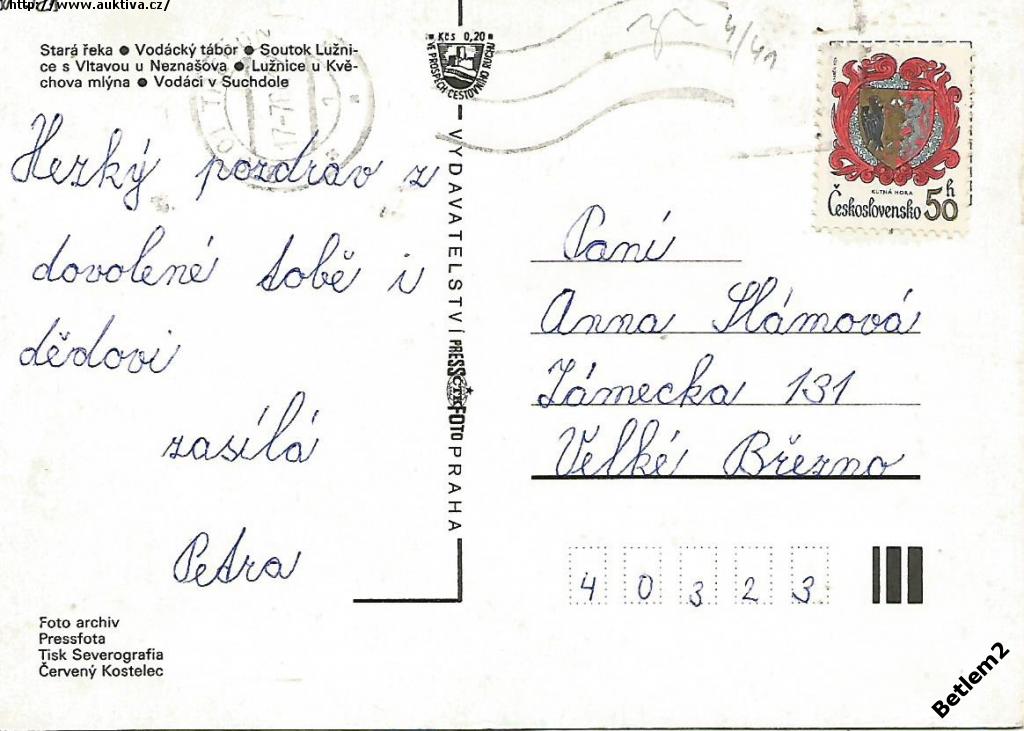 http://www.auktiva.cz/
Stará řeka ● Vodácký tábor ● Soutok Lužni-
ce s Vltavou u Neznašova ● Lužnice u Kvě-
chova mlýna ● Vodáci v Suchdole
Hezký pozdrav z
dovolené tobě i
dědovi
zasílá
Petra
Foto archiv
Pressfota
Tisk Severografia
Červený Kostelec
Kčs 0,20
VE PROSPĚCH CESTOVNÍHO RUCHU
VYDAVATELSTVÍ PRESSFOTO PRAHA
ČTK
4/41
KUTNÁ HORA
Československo 50 h
Paní
Anna Slámová
Zámecka 131
Velké Březno
40323
Betlem2